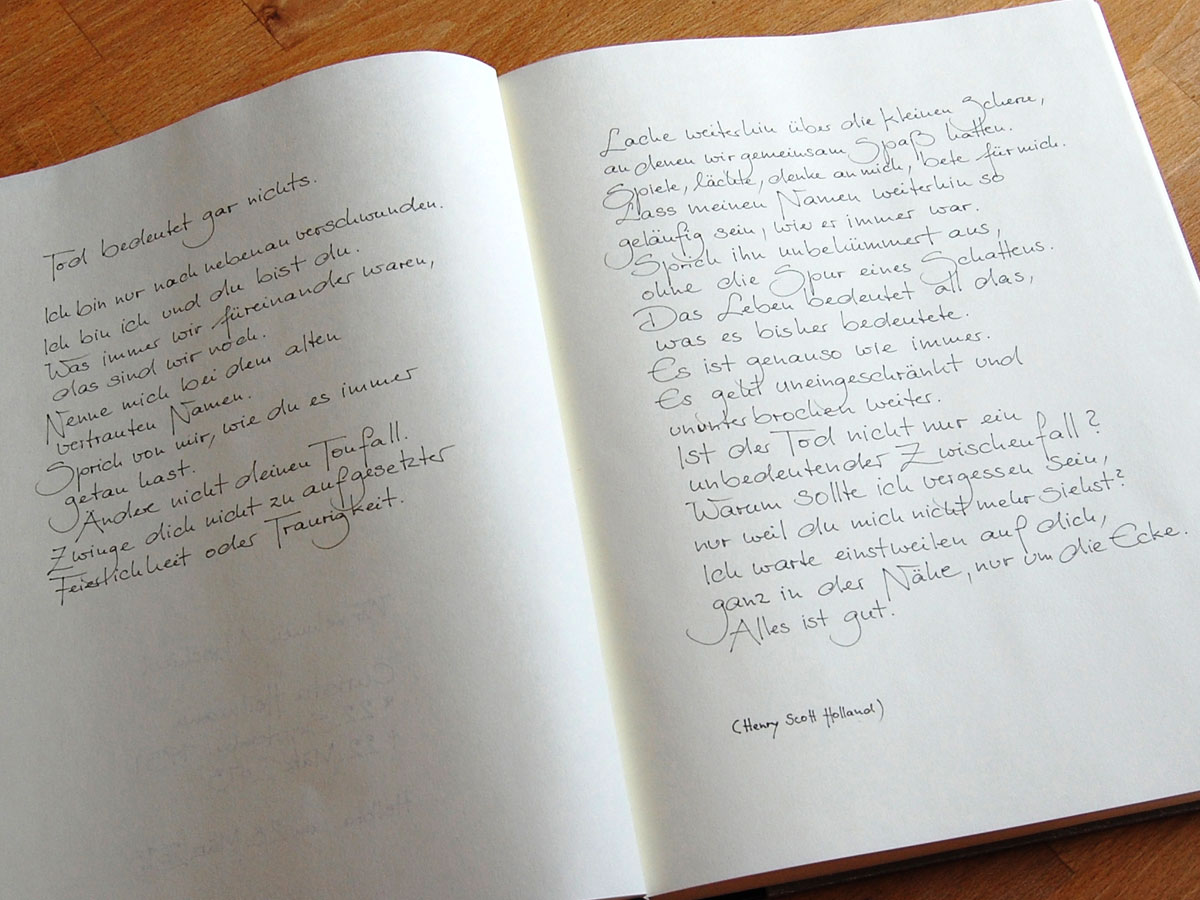 Tod bedeutet gar nichts.
Ich bin nur nach nebenan verschwunden.
Ich bin ich und du bist du.
Was immer wir füreinander waren,
das sind wir noch.
Nenne mich bei dem alten
vertrauten Namen.
Sprich von mir, wie du es immer
getan hast.
Ändere nicht deinen Tonfall.
Zwinge dich nicht zu aufgesetzter
Feierlichkeit oder Traurigkeit.
Lache weiterhin über die kleinen Scherze,
an denen wir gemeinsam Spaß hatten.
Spiele, lächle, denke an mich, bete für mich.
Lass meinen Namen weiterhin so
geläufig sein, wie er immer war.
Sprich ihn unbekümmert aus,
ohne die Spur eines Schattens.
Das Leben bedeutet all das,
was es bisher bedeutete.
Es ist genauso wie immer.
Es geht uneingeschränkt und
ununterbrochen weiter.
Ist der Tod nicht nur ein
unbedeutender Zwischenfall?
Warum sollte ich vergessen sein,
nur weil du mich nicht mehr siehst?
Ich warte einstweilen auf dich,
ganz in der Nähe, nur um die Ecke.
Alles ist gut.
(Henry Scott Holland)